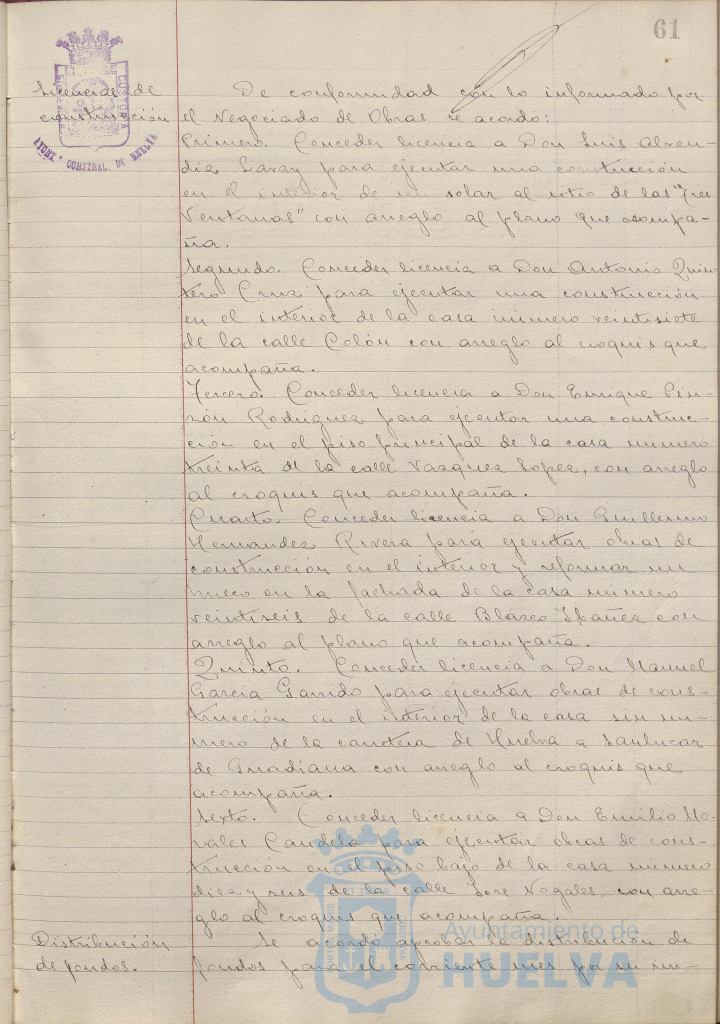 61
Licencias de
construcción
AYUNT.º CONSTNAL. DE HUELVA
De conformidad con lo informado por
el Negociado de Obras se acordó:
Primero. Conceder licencia a Don Luis
para ejecutar una construcción
en el interior de un solar al sitio de las "Tres
Ventanas" con arreglo al plano que acompa-
ña.
Segundo. Conceder licencia a Don Antonio Quin-
tero Cruz para ejecutar una construcción
en el interior de la casa número veintisiete
de la calle Colón con arreglo al croquis que
acompaña.
Tercero. Conceder licencia a Don Enrique Pin-
zón Rodriguez para ejecutar una construc-
ción en el piso principal de la casa numero
treinta de la calle Vazquez Lopez, con arreglo
al croquis que acompaña.
Cuarto. Conceder licencia a Don Guillermo
Hernandez Rivera para ejecutar obras de
construcción en el interior y reformar un
hueco en la fachada de la casa número
veintiseis de la calle Blasco Ibañez con
arreglo al plano que acompaña.
Quinto. Conceder licencia a Don Manuel
Garcia Garrido para ejecutar obras de cons-
trucción en el interior de la casa sin nu-
mero de la carretera de Huelva a Sanlucar
de Guadiana con arreglo al croquis que
acompaña.
Sexto. Conceder licencia a Don Emilio Mo-
rales Candela para ejecutar obras de cons-
trucción en el piso bajo de la casa numero
diez y seis de la calle Jose Nogales, con arre-
glo al croquis que acompaña.
Distribución
de fondos.
Se acordó aprobar la distribución de
fondos para el corriente mes por su im-
Ayuntamiento de
HUELVA